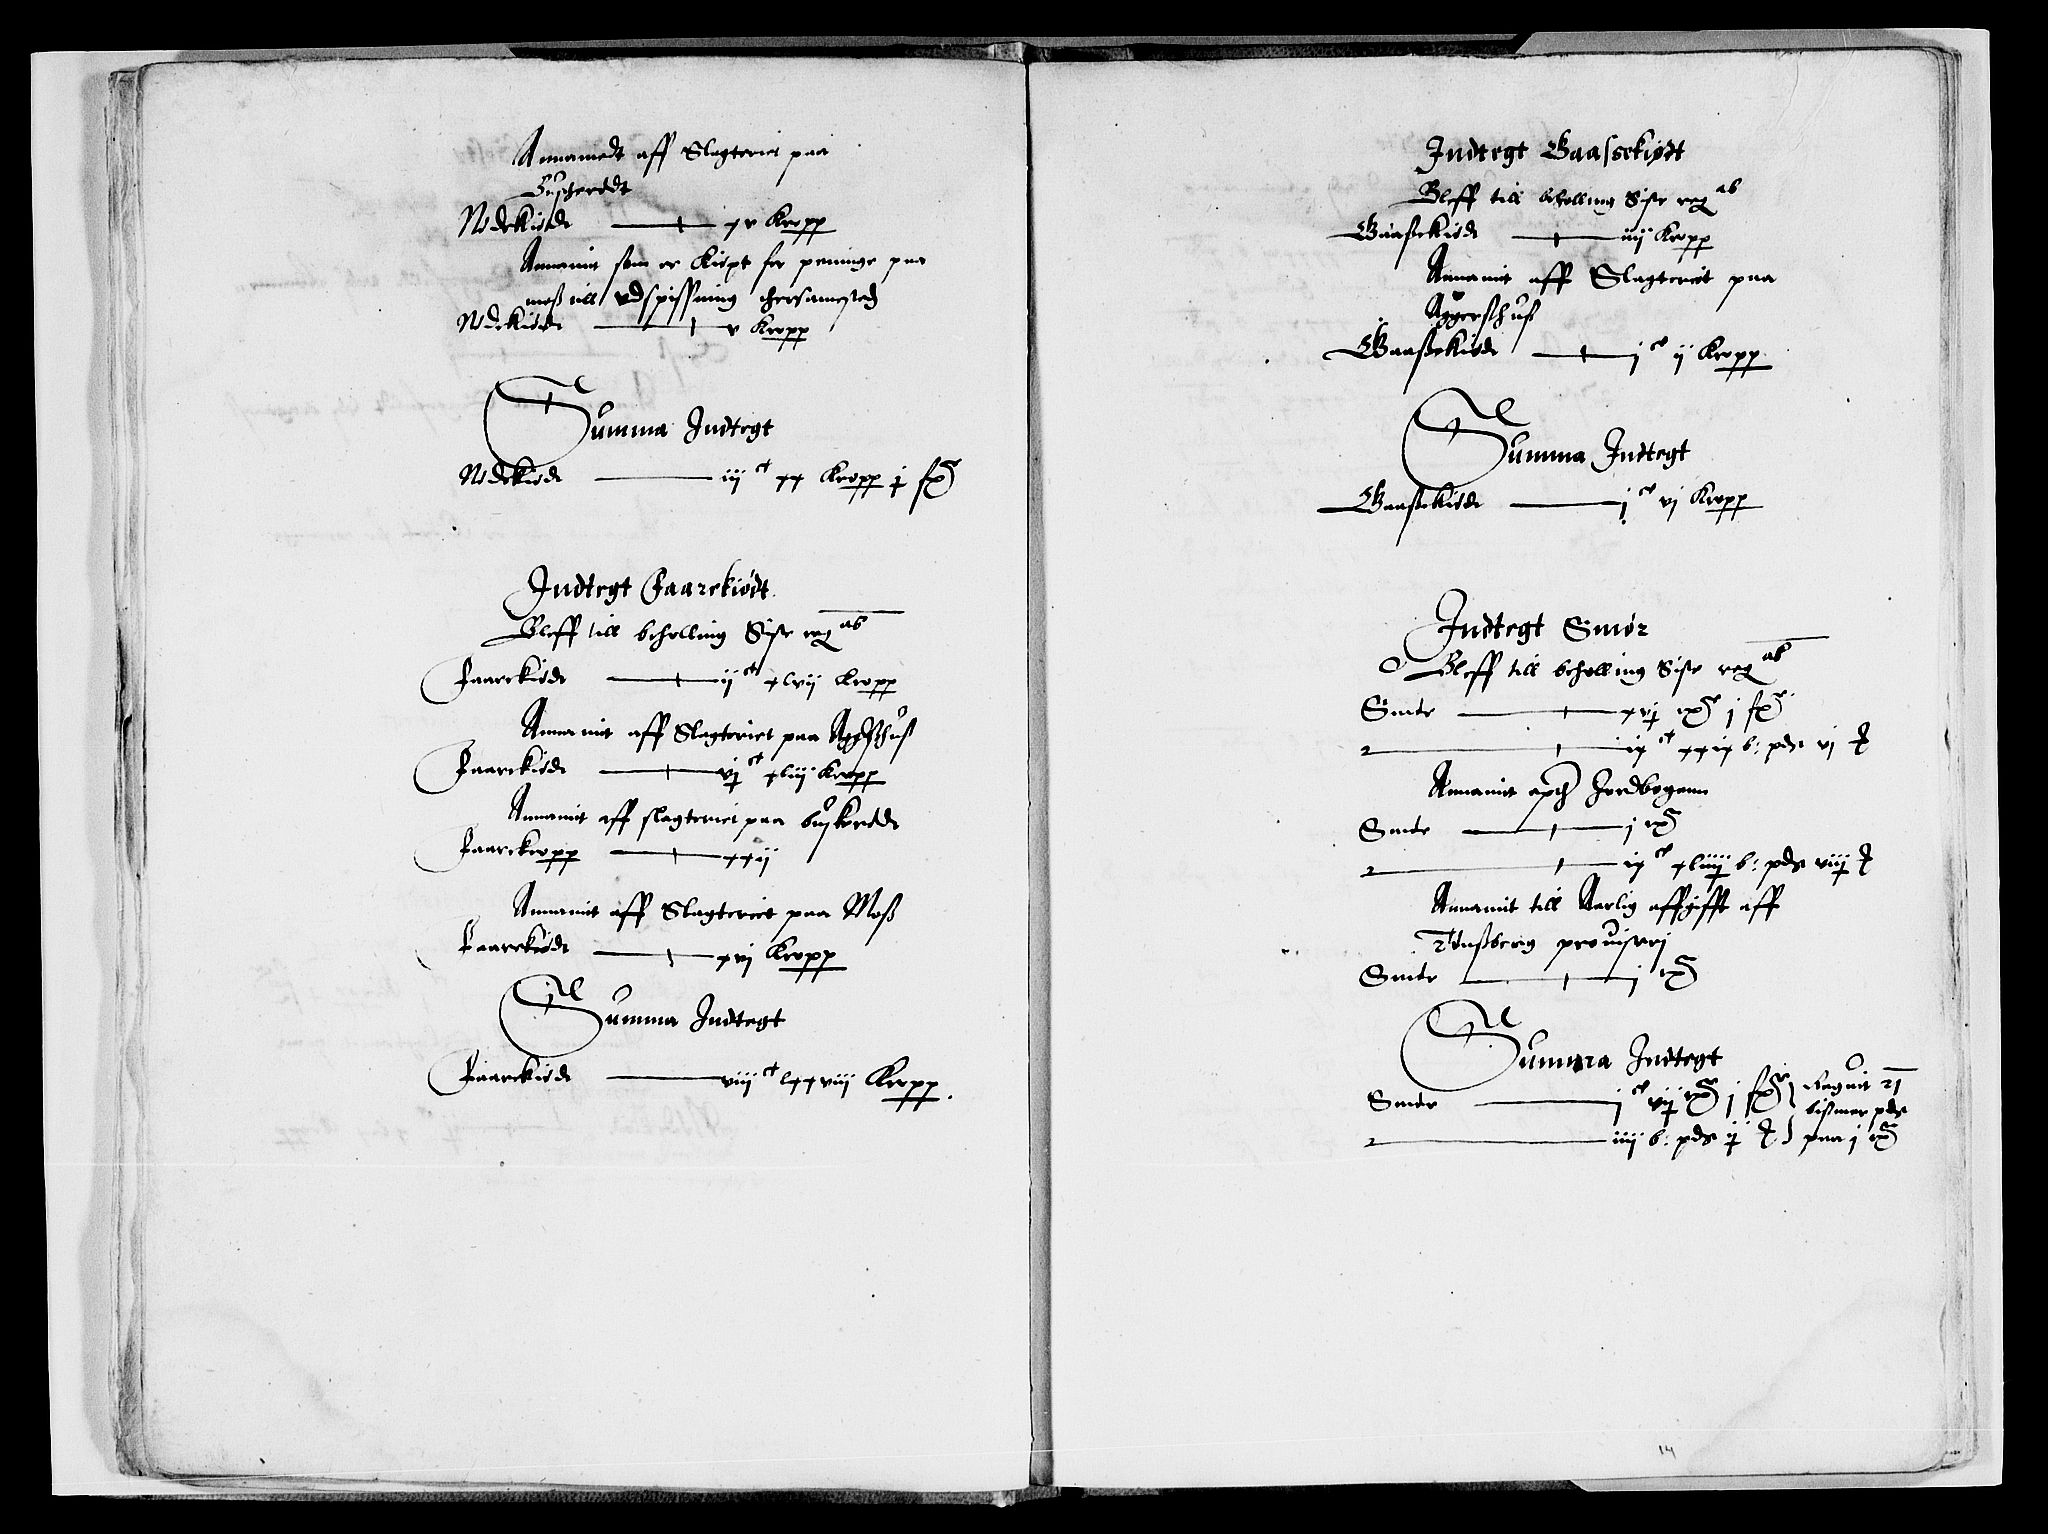 Annamedt aff Slagteriet paa
Buskerødt
Nødekiød xv Kropp
Annamit som er Kiøpt for peninge paa
moß till vdspissning thersamested
Nødekiød v Kropp
Summa Indtegt
Nødekiød iij ct xx Kropp
Indtegt Faarekiødt
Bleff till beholling Siste reg ab
Faarekiød ij ct xlvij Kropp
Annamit aff Slagteriet paa Aggershus
Faarekiød xliij Kropp
Annamit aff slagteriet paa buskerødt
Faarekropp xxij
Annamit aff Slagteriet paa Moß
Faarekiød xvj Kropp
Summa Indtegt
Faarekiød viij ct lxxviij Kropp
Indtegt Gaassekiødt
Bleff till beholling Siste reg ab
Gaassekiød iiij Kropp
Annamit aff Slagteriet paa
Aggershus
Gaassekiød j ct ij Kropp
Summa Indtegt
Gaassekiød j ct vj Kropp
Indtegt Smør
Bleff till beholling Siste reg ab
Smør
b: pde vj
Annamit epth Jordbogenn
Smør j
b: pde
Annamit till Aarlig affgifft aff
Tønßberg provisterj
Smør j
Summa Indtegt
Smør j ct
bißmer pde
iiij b: pde
paa j
14